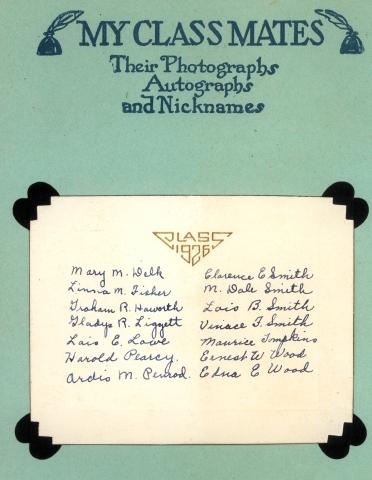 MY CLASS MATES
Their Photographs
Autographs
and Nicknames
CLASS
1926
Mary M. Delk
Linnia M. Fisher
Graham R. Haworth
Gladys R. Liggett
Lois E. Lowe
Harold Pearcy.
Ardis M. Penrod.
Clarence E Smith
M. Dale Smith
Lois B. Smith
F. Smith
Maurice Tompkins
Ernest W Wood
Edna E Wood